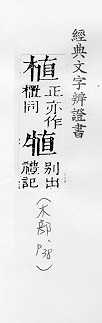 經典文字辨證書
植正亦作
㮨同
犆別出
禮記
(木部、P38)